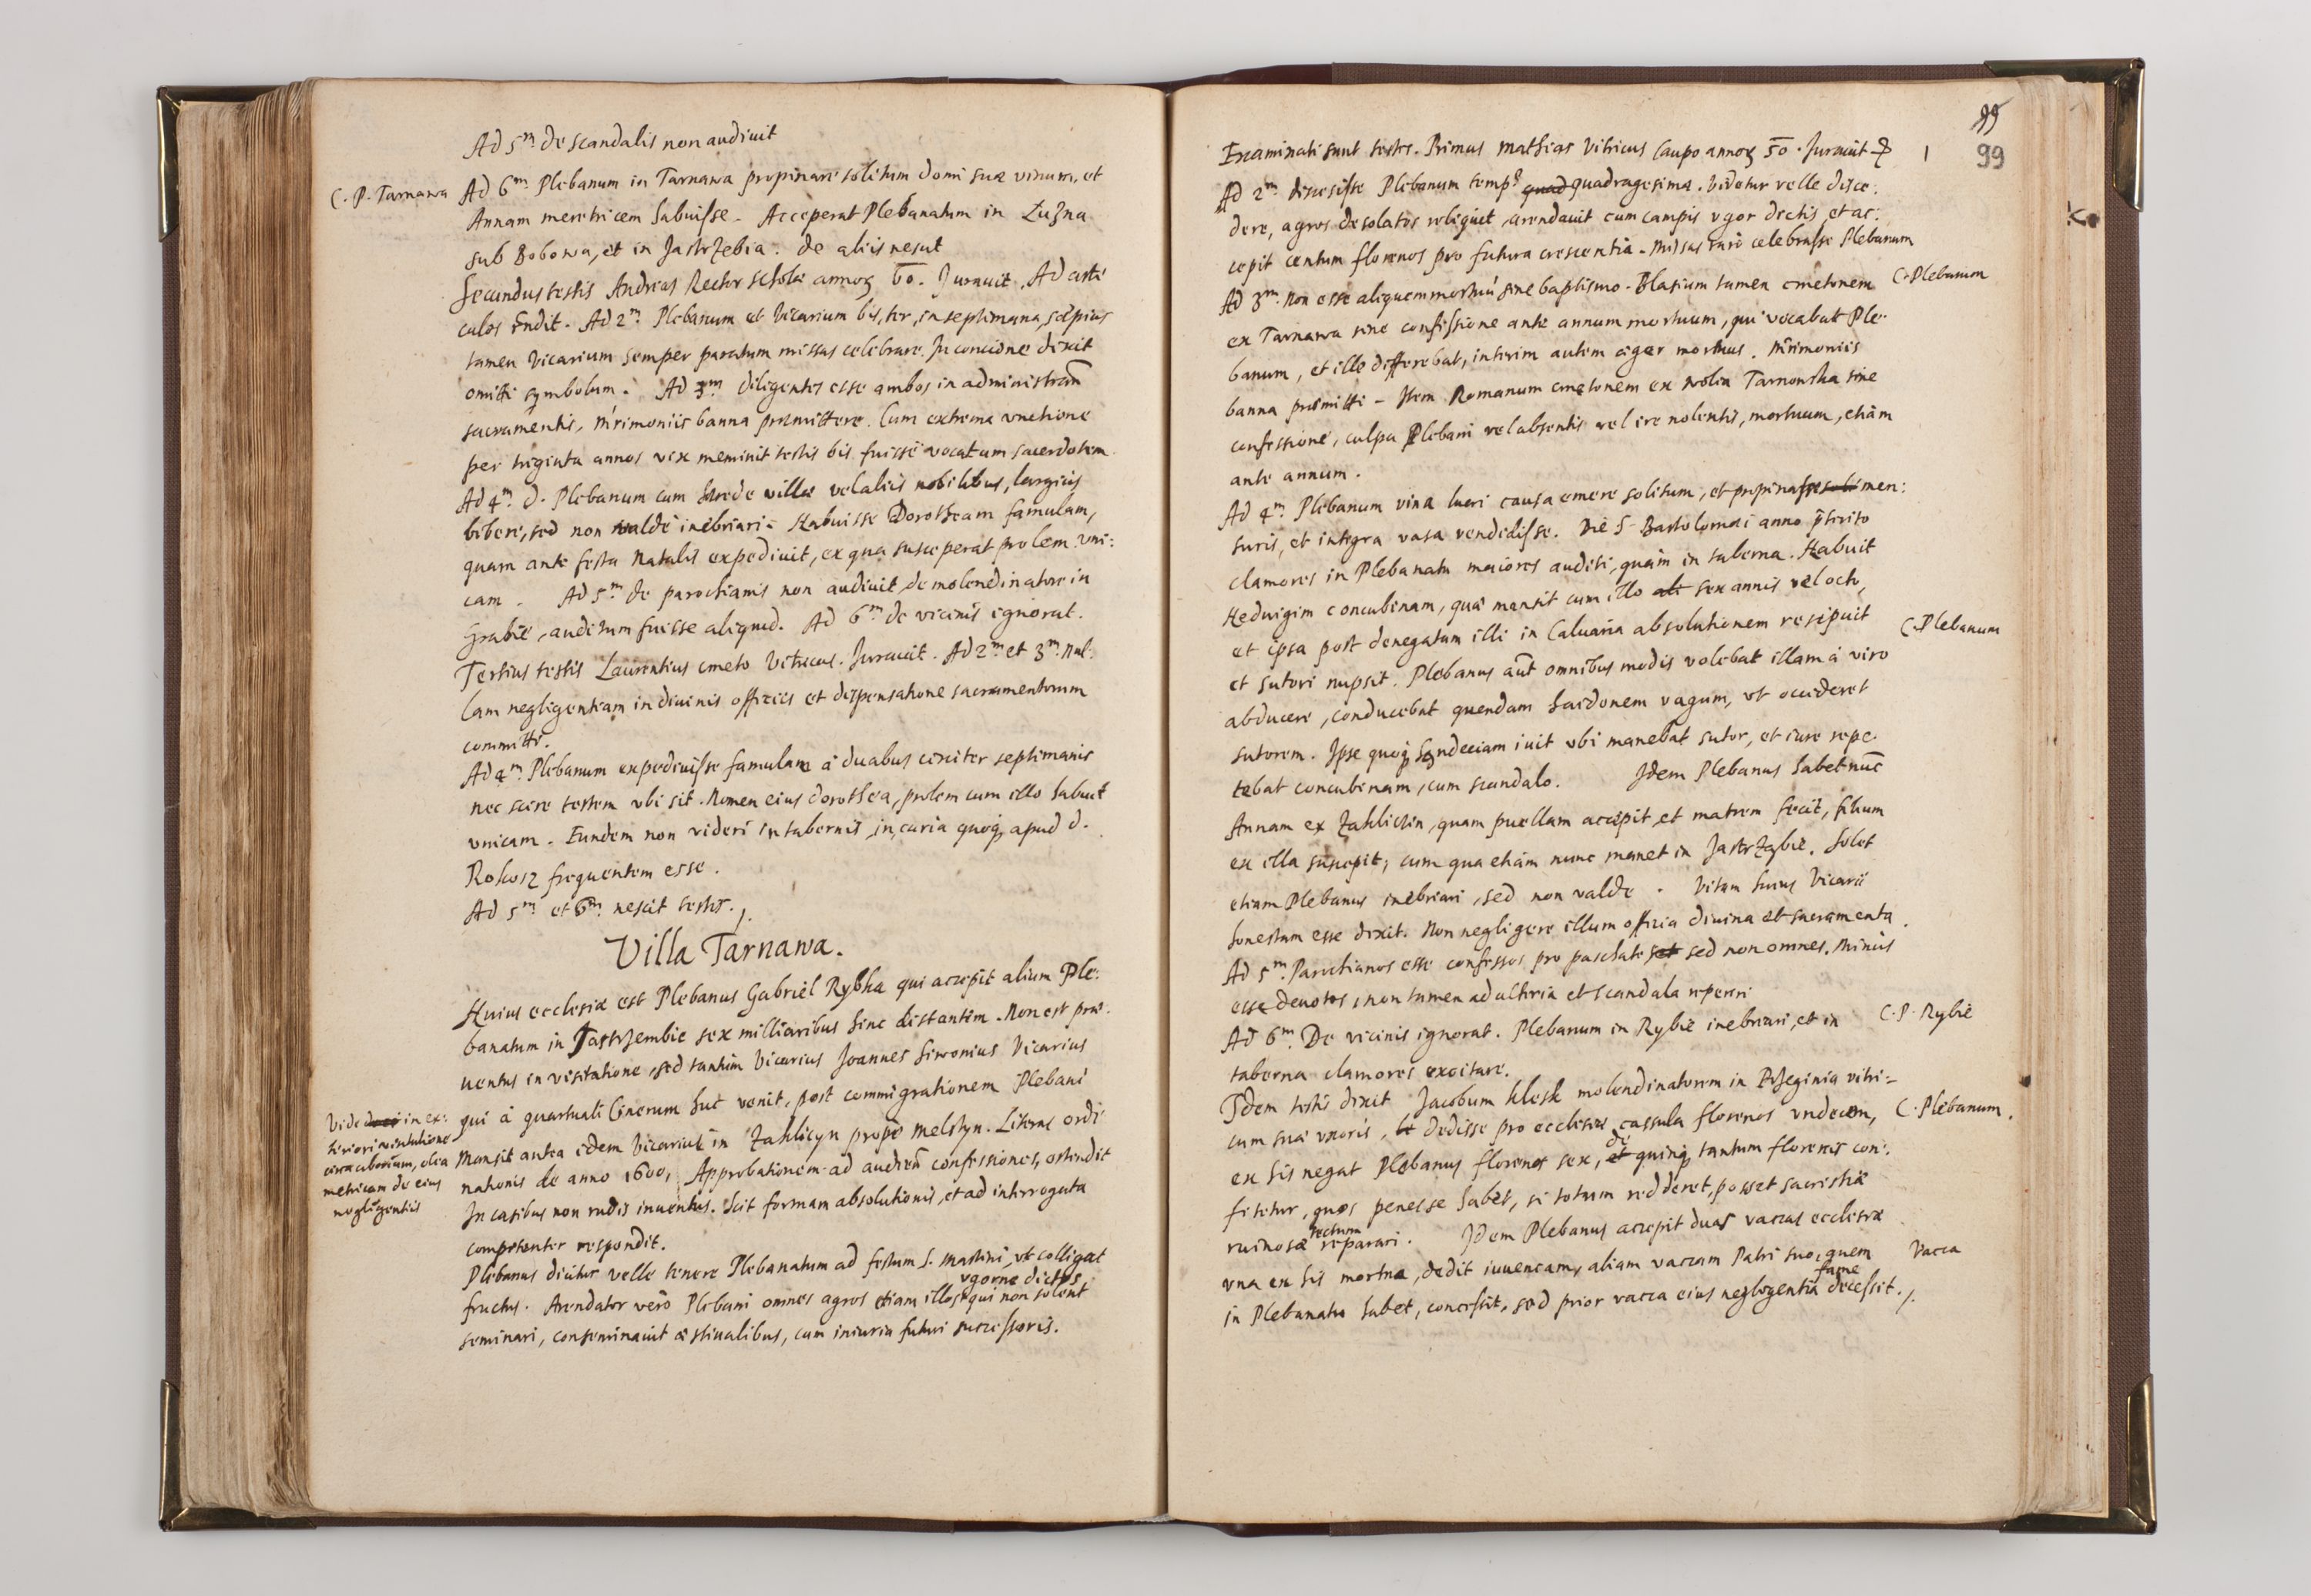 Ad 5m. de scandalis non audiuit
C. P. Tarnawa
Ad 6m. Plebanum in Tarnawa propinare solitum domi suæ vinum, et
Annam meretricem habuisse. Acceperat Plebanatum in Luzna
sub Bobowa, et in Jastrzebia. de aliis nescit
Secundus testis Andreas Rector scholæ annoꝝ 60. Jurauit. Ad arti
culos r̃ndit. Ad 2m. Plebanum et Vicarium bis, ter, in septimana, sæpius
tamen Vicarium semper paratum missas celebrare. In concione dixit
omitti symbolum. Ad 3m. diligentes esse ambos in administram̃
sacramentis, mr̃imoniis banna præmittere. Cum extrema vnctione
per triginta annos vix meminit testis bis fuisse vocatum sacerdotem.
Ad 4m. d. Plebanum cum hærede villæ vel aliis nobilibus, largius
bibere, sed non valde inebriari. Habuisse Dorotheam famulam,
quam ante festa Natalis expediuit, ex qua susceperat prolem vni:
cam. Ad 5m. de parochianis non audiuit, de molendinatore in
Grabie, auditum fuisse aliquid. Ad 6m. de vicinis ignorat.
Tertius testis Laurentius cmeto Vitricus. Jurauit. Ad 2m. et 3m. Nul:
lam negligentiam in diuinis officiis et dispensatione sacramentorum
committi.
Ad 4m. Plebanum expediuisse famulam à duabus circiter septimanis
nec scire testem vbi sit. Nomen eius dorothea, prolem cum illo habuit
vnicam. Eundem non videri in tabernis, in curia quoqꝫ apud d.
Rokosz frequentem esse.
Ad 5m. et 6m. nescit testis ./.
Villa Tarnawa.
Huius ecclesiæ est Plebanus Gabriel Rybka qui accepit alium Ple:
banatum in Jastrzembie sex milliaribus hinc distantem. Non est præ:
uentus in visitatione, sed tantùm Vicarius Joannes Siwonius Vicarius
qui à quartuali Cinerum huc venit, post commigrationem Plebani
Mansit antea idem Vicarius in Zakliczyn prope Melstyn. Literas ordi
nationis de anno 1600, Approbationem ad audien̄ confessiones, ostendit
In casibus non rudis inuentus. Scit formam absolutionis, et ad interrogata
competenter respondit.
Vide in ex:
teriori visitatione
circa ciborium, olea
metricam de eius
negligentiis
Plebanus dicitur velle tenere Plebanatum ad festum S. Martini, vt colligat
fructus. Arendator verò Plebani omnes agros etiam illos vgorne dictos, qui non solent
seminari, conseminauit æstiualibus, cum iniuria futuri successoris.
99
99
Examinati sunt testes. Primus Mathias Vitricus Caupo annoꝝ 50. Jurauit
1
Ad 2m. discesisse Plebanum temp̃e quad quadragesimæ. Videtur velle disce:
dere, agros desolatos reliquit arendauit cum campis vgor dictis, et ac:
cepit centum florenos pro futura crescentia. Missas rarò celebrasse Plebanum
Ad 3m. Non esse aliquem mortuũ sine baptismo. Blasium tamen cmetonem
C. Plebanum
ex Tarnawa sine confessione ante annum mortuum, qui vocabat Ple:
banum, et ille differebat, interim autem æger mortuus. Mr̃imoniis
banna præmitti – Item Romanum cmetonem ex Wolia Tarnowska sine
confessione, culpa Plebani vel absentis vel ire nolentis, mortuum, etiam
ante annum.
Ad 4m. Plebanum vina lucri causa emere solitum, et propinasse soli men:
suris, et integra vasa vendidisse. Die S. Bartolomæi anno p̃terito
clamores in Plebanatu maiores auditi, quàm in taberna. Habuit
Heduigim concubinam, quæ mansit cum illo ali sex annis vel octo,
et ipsa post denegatam illi in Caluaria absolutionem resipuit
C. Plebanum
et sutori nupsit. Plebanus aũt omnibus modis volebat illam à viro
abducere, conducebat quendam haidonem vagum, vt occideret
sutorem. Ipse quoqꝫ Sandeciam iuit vbi manebat sutor, et iure repe:
tebat concubinam, cum scandalo. Idem Plebanus habet nũc
Annam ex Zakliczin, quam puellam accepit et matrem fecit, filium
ex illa suscepit, cum qua etiam nunc manet in Jastrzębie. Solet
etiam Plebanus inebriari, sed non valde. Vitam huius Vicarii
honestam esse dixit. Non negligere illum officia diuina et sacramenta.
Ad 5m. Parochianos esse confessos pro paschate set sed non omnes. Minus
esse deuotos, non tamen adulteria et scandala reperiri
Ad 6m. De vicinis ignorat. Plebanum in Rybie inebriari, et in
C. P. Rybie
taberna clamores excitare.
Idem testis dixit Jacobum klesk molendinatorem in Przeginia vitri:
cum suæ vxoris, dedisse pro ecclesiæ cassula florenos vndecem,
C. Plebanum.
ex his negat Plebanus florenos sex, et de quinqꝫ tantum florenis con:
fitetur, quos penes se habet, si totum redderet, posset sacristiæ
ruinosæ tectum reparari. Idem Plebanus accepit duas vaccas ecclesiæ
vna ex his mortua, dedit iuuencam, aliam vaccam Patri suo, quem
Vacca
in Plebanatu habet, concessit, sed prior vacca eius negligentia fame decessit ./.